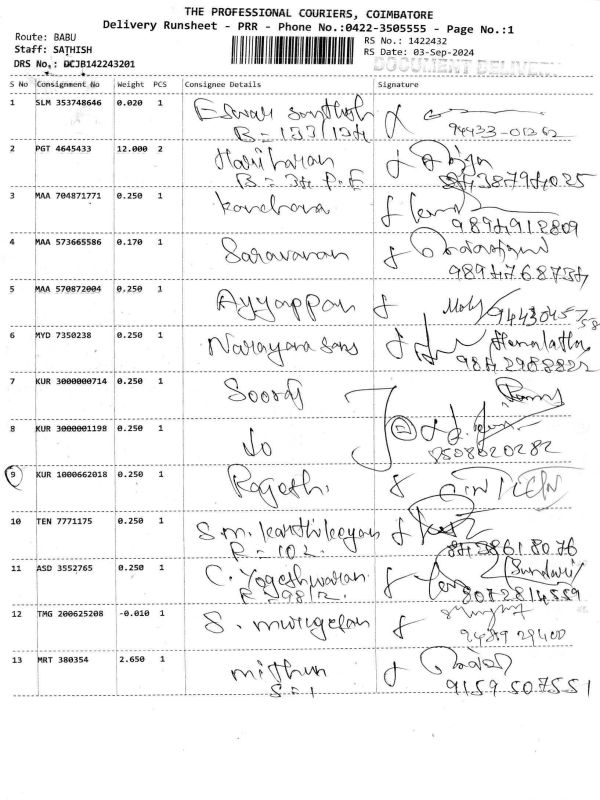 THE PROFESSIONAL COURIERS, COIMBATORE
Delivery Runsheet - PRR - Phone No.:0422-3505555 - Page No.:1
Route: BABU
RS No.: 1422432
Staff: SATHISH
RS Date: 03-Sep-2024
DRS No.: DCJB142243201
DOCUMENT DELIVERY
S No Consignment No Weight PCS Consignee Details Signature
1 SLM 353748646 0.020 1 Eswar Santhosh
B = 133/134 94433-01262
2 PGT 4645433 12.000 2 Hariharan
B = 34 P.E 8438794025
3 MAA 704871771 0.250 1 Kanchana
9894912809
4 MAA 573665586 0.170 1 Saravanan
9894768734
5 MAA 570872004 0.250 1 Ayyappan
9443045758
6 MYD 7350238 0.250 1 Narayana Sons Hemalatha
9842988822
7 KUR 3000000714 0.250 1 Sooraj
8 KUR 3000001198 0.250 1 do
9508020282
9 KUR 1000662018 0.250 1 Rajesh.
10 TEN 7771175 0.250 1 S.M. Karthikeyan
R = 102. 8438618076
11 ASD 3552765 0.250 1 C. Yogeshwaran Sundari
R = 98/2. 8072814559
12 TMG 200625208 -0.010 1 S. Murugesan
13 MRT 380354 2.650 1 Mithun
S = 1 9159507551